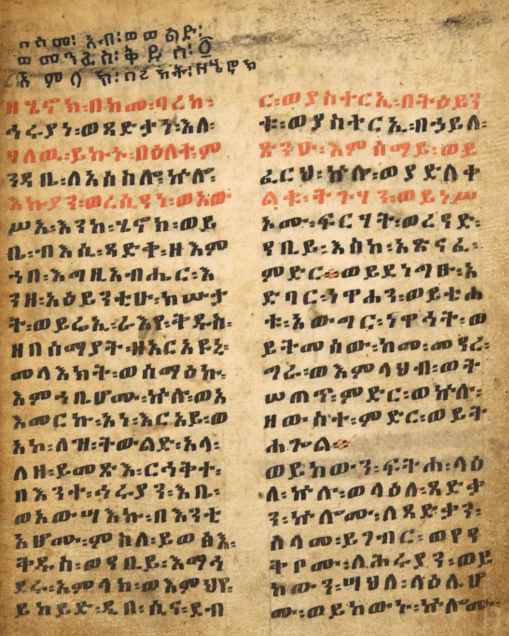 በስመ፡ አብ፡ ወወልድ፡
ወመንፈስ፡ ቅዱስ፡ ፩
አምላክ፡ በረከት፡ ዘሄኖክ
ዘሄኖክ፡በከመ፡ባረከ፡
ኅሩያነ፡ወጻድቃን፡እለ፡
ሃለዉ፡ይኩኑ፡በዕለተ፡ም
ንዳቤ፡ለአሰስሎ፡ኵሎ፡
እኩያን፡ወረሲዓን፡ወአው
ሥአ፡እንከ፡ሄኖክ፡ወይ
ቤ፡ብእሲ፡ጻድቅ፡ዘእም
ኀበ፡እግዚአብሔር፡እ
ንዘ፡አዕይንቲሁ፡ክሡታ
ት፡ወይሬኢ፡ራእየ፡ቅዱሰ፡
ዘበሰማያት፡ዘአርአዩኒ፡
መላእክት፡ወሰማዕኩ፡
እምኀቤሆሙ፡ኵሎ፡ወአ
እመርኩ፡አነ፡እርአይ፡ወ
አኮ፡ለዝ፡ትውልድ፡አላ፡
ለዘ፡ይመጽእ፡ርኁቅት፡
በእንተ፡ኅሩያን፡እቤ፡
ወአውሣእኩ፡በእንቲ
አሆሙ፡ምስለ፡ይወፅእ፡
ቅዱስ፡ወዓቢይ፡እማኅ
ደሩ፡አምላክ፡ወእምህየ፡
ይከይድ፡ዲበ፡ሲና፡ደብ
ር፡ወያስተርኢ፡በትዕይን
ቱ፡ወያስተርኢ፡በኃይለ፡
ጽንዑ፡እምሰማይ፡ወይ
ፈርህ፡ኵሉ፡ወያድለቀ
ልቁ፡ትጉሃን፡ወይነሥ
ኦሙ፡ፍርሃት፡ወረዓድ፡
ዓቢይ፡እስከ፡አጽናፈ፡
ምድር። ወይደነግፁ፡አ
ድባር፡ነዋኃን፡ወይቴሐ
ቱ፡አውግር፡ነዋኅት፡ወ
ይትመሰው፡ከመ፡መዓረ፡
ግራ፡ወእምላህብ፡ወት
ሠጠም፡ምድር፡ወኵሉ፡
ዘውስተ፡ምድር፡ወይት
ሐጐል።
ወይከውን፡ፍትሐ፡ላዕ
ለ፡ኵሉ፡ወላዕለ፡ጻድቃ
ን፡ኵሎሙ፡ለጻድቃን፡
ሰላመ፡ይገብር፡ወየዓ
ቅቦሙ፡ለኅሩያን፡ወይ
ከውን፡ሣህል፡ላዕሌሆ
ሙ፡ወይከውኑ፡ኵሎሙ፡